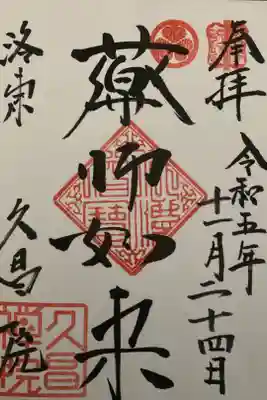 奉拝
令和五年
十一月二十四日
薬師如来
洛東
久昌院